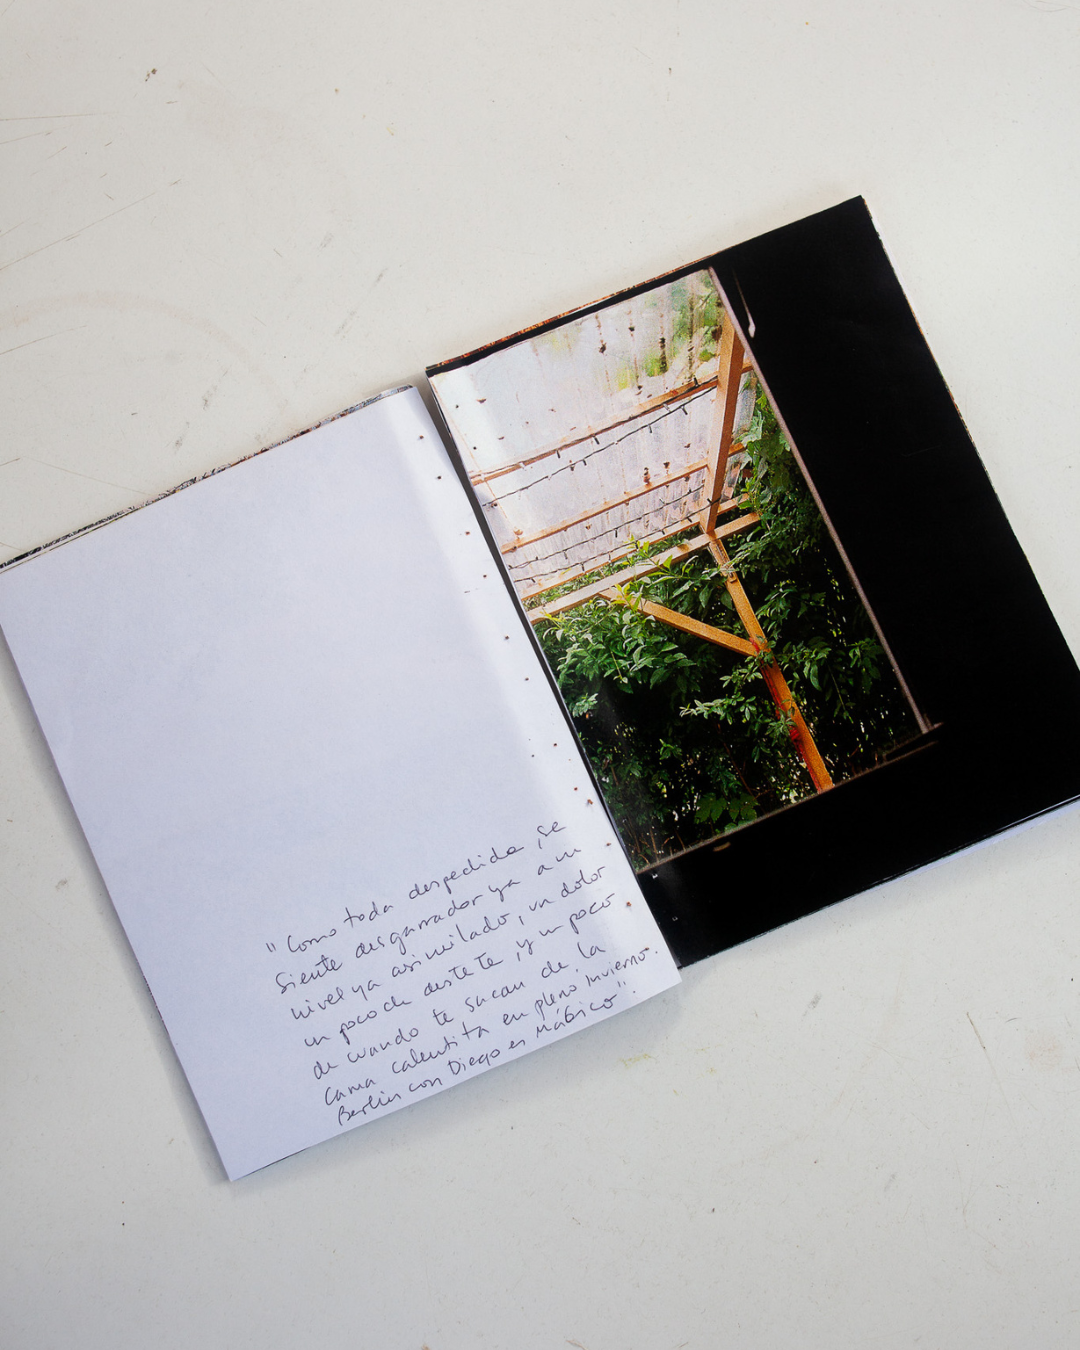 "Como toda despedida, se
siente desgarrador ya a un
nivel ya asimilado, un dolor
un poco de destete, y un poco
de cuando te sacan de la
cama calentita en pleno invierno.
Berlín con Diego es mágico".